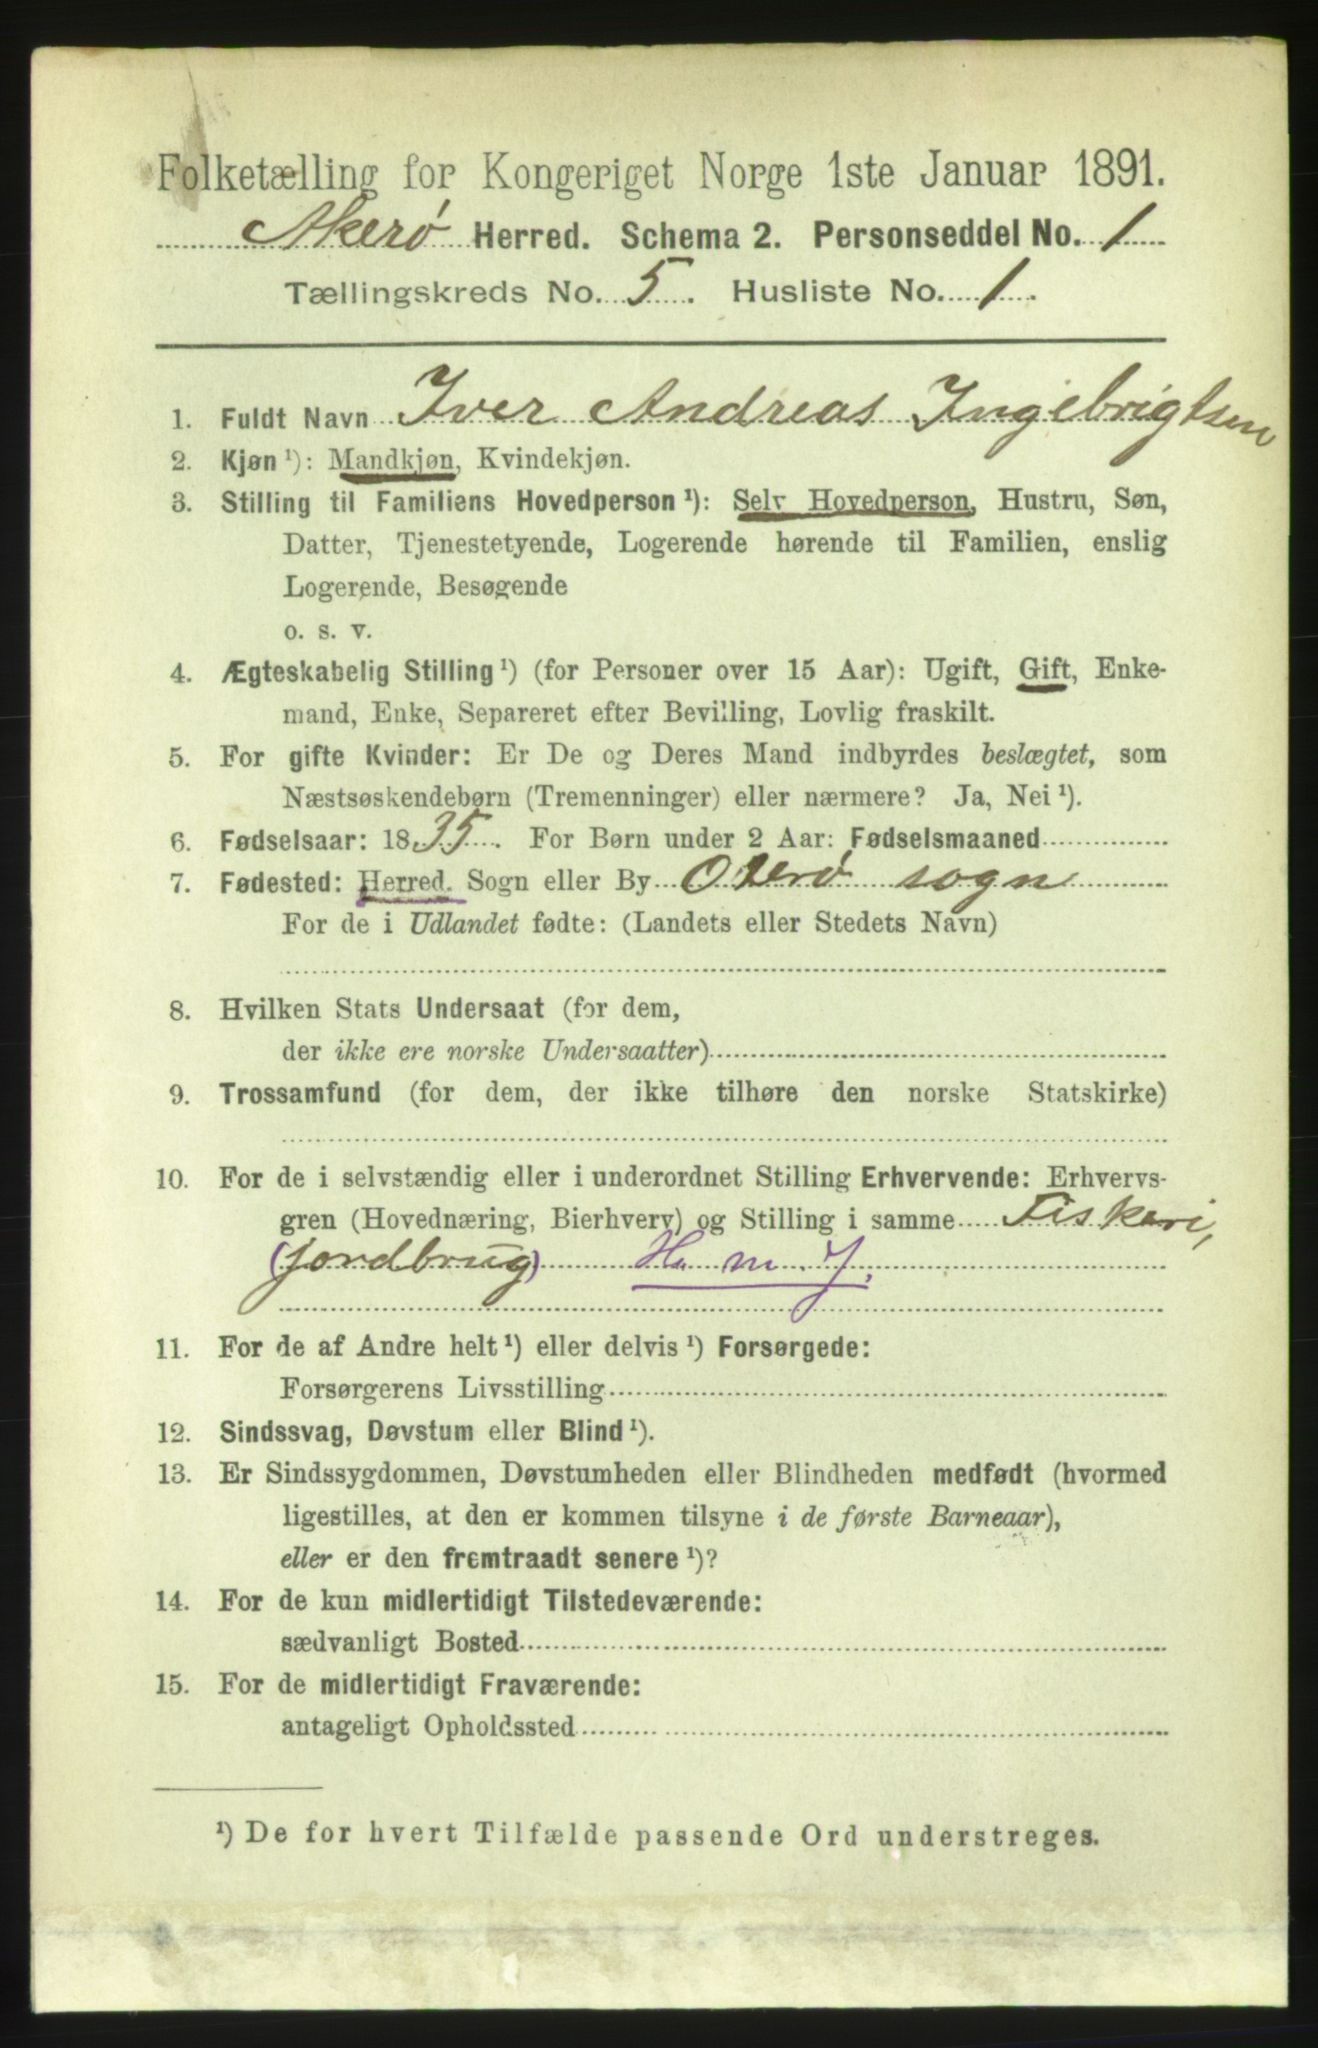 Folketælling for Kongeriget Norge 1ste Januar 1891.
Akerø Herred. Schema 2. Personseddel No. 1
Tællingskreds No. 5. Husliste No. 1.
1. Fuldt Navn Iver Andreas Ingebrigtsen
2. Kjøn ¹): Mandkjøn, Kvindekjøn.
3. Stilling til Familiens Hovedperson ¹): Selv Hovedperson, Hustru, Søn,
Datter, Tjenestetyende, Logerende hørende til Familien, enslig
Logerende, Besøgende
o. s. v.
4. Ægteskabelig Stilling ¹) (for Personer over 15 Aar): Ugift, Gift, Enke-
mand, Enke, Separeret efter Bevilling, Lovlig fraskilt.
5. For gifte Kvinder: Er De og Deres Mand indbyrdes beslægtet, som
Næstsøskendebørn (Tremenninger) eller nærmere? Ja, Nei ¹).
6. Fødselsaar: 1835. For Børn under 2 Aar: Fødselsmaaned
7. Fødested: Herred. Sogn eller By sogn
For de i Udlandet fødte: (Landets eller Stedets Navn)
8. Hvilken Stats Undersaat (for dem,
der ikke ere norske Undersaatter)
9. Trossamfund (for dem, der ikke tilhøre den norske Statskirke)
10. For de i selvstændig eller i underordnet Stilling Erhvervende: Erhvervs-
gren (Hovednæring, Bierhverv) og Stilling i samme Fiskeri,
(jordbrug) H. m. J.
11. For de af Andre helt ¹) eller delvis ¹) Forsørgede:
Forsørgerens Livsstilling
12. Sindssvag, Døvstum eller Blind ¹).
13. Er Sindssygdommen, Døvstumheden eller Blindheden medfødt (hvormed
ligestilles, at den er kommen tilsyne i de første Barneaar),
eller er den fremtraadt senere ¹)?
14. For de kun midlertidigt Tilstedeværende:
sædvanligt Bosted
15. For de midlertidigt Fraværende:
antageligt Opholdssted
¹) De for hvert Tilfælde passende Ord understreges.